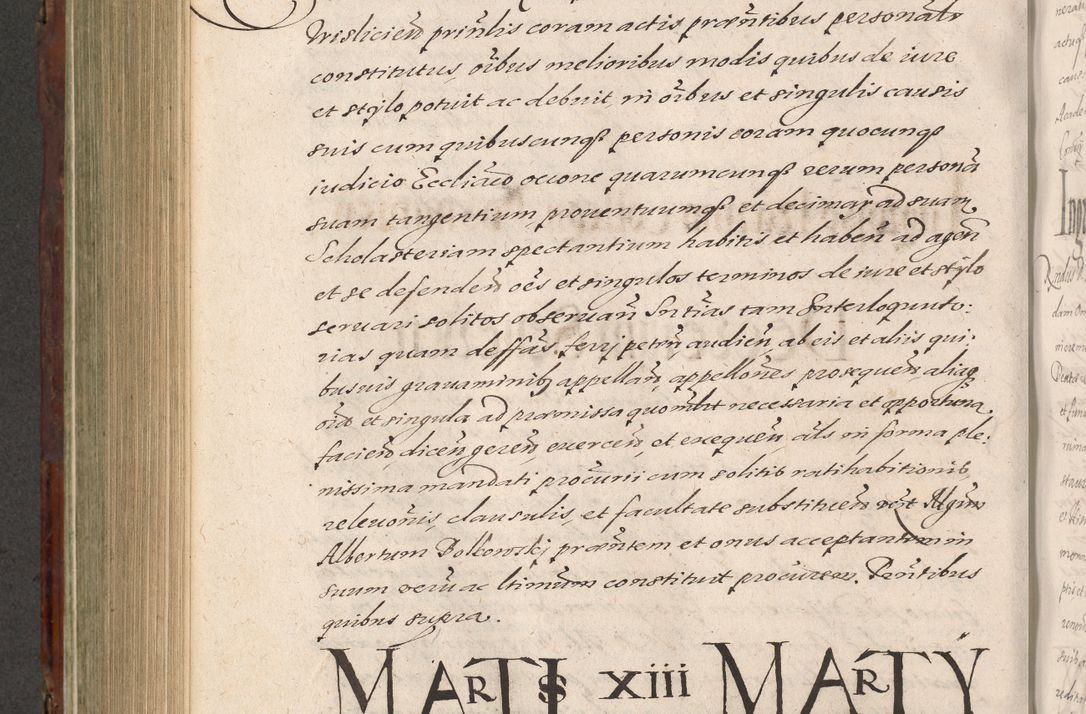 Wislicieñ prinlis coram actis prœñtibus personalr
constitutus, oîbus melioribus modis quibus de iure
et stylo potuit ac debuit, in oîbus et singulis causis
suis cum quibuscunqȝ personis coram quocunqȝ
iudicio Eccliaco occone quarumcunqȝ rerum personã
suam tangentium, prouentuumqȝ et decimar ad suam
Scholasteriam spectantium habitis et habeñ ad agen
et se defendeñ oes et singulos terminos de iure et stylo
seruari solitos obseruañ Sntias tam Interloquuto:
rias quam deffas, ferrj petrñ, audieñ, ab eis et aliis qui:
busuis grauaminibȝ appellañ, appellones prosequeñ, aliaqȝ
oia et singula ad prœmissa quomlt necessaria et opportuna
facieñ, diceñ, gereñ, exerceñ, et exequeñ, als in forma ple:
nissima mandati procurii cum solitis ratihabitionis,
releuonis, clausulis, et facultate substitueñ
Albertum prœñtem et onus acceptantem in
suum verũ ac ltimum constituit procurem. Prñtibus
quibus supra.
MARTIS XIII MARTY